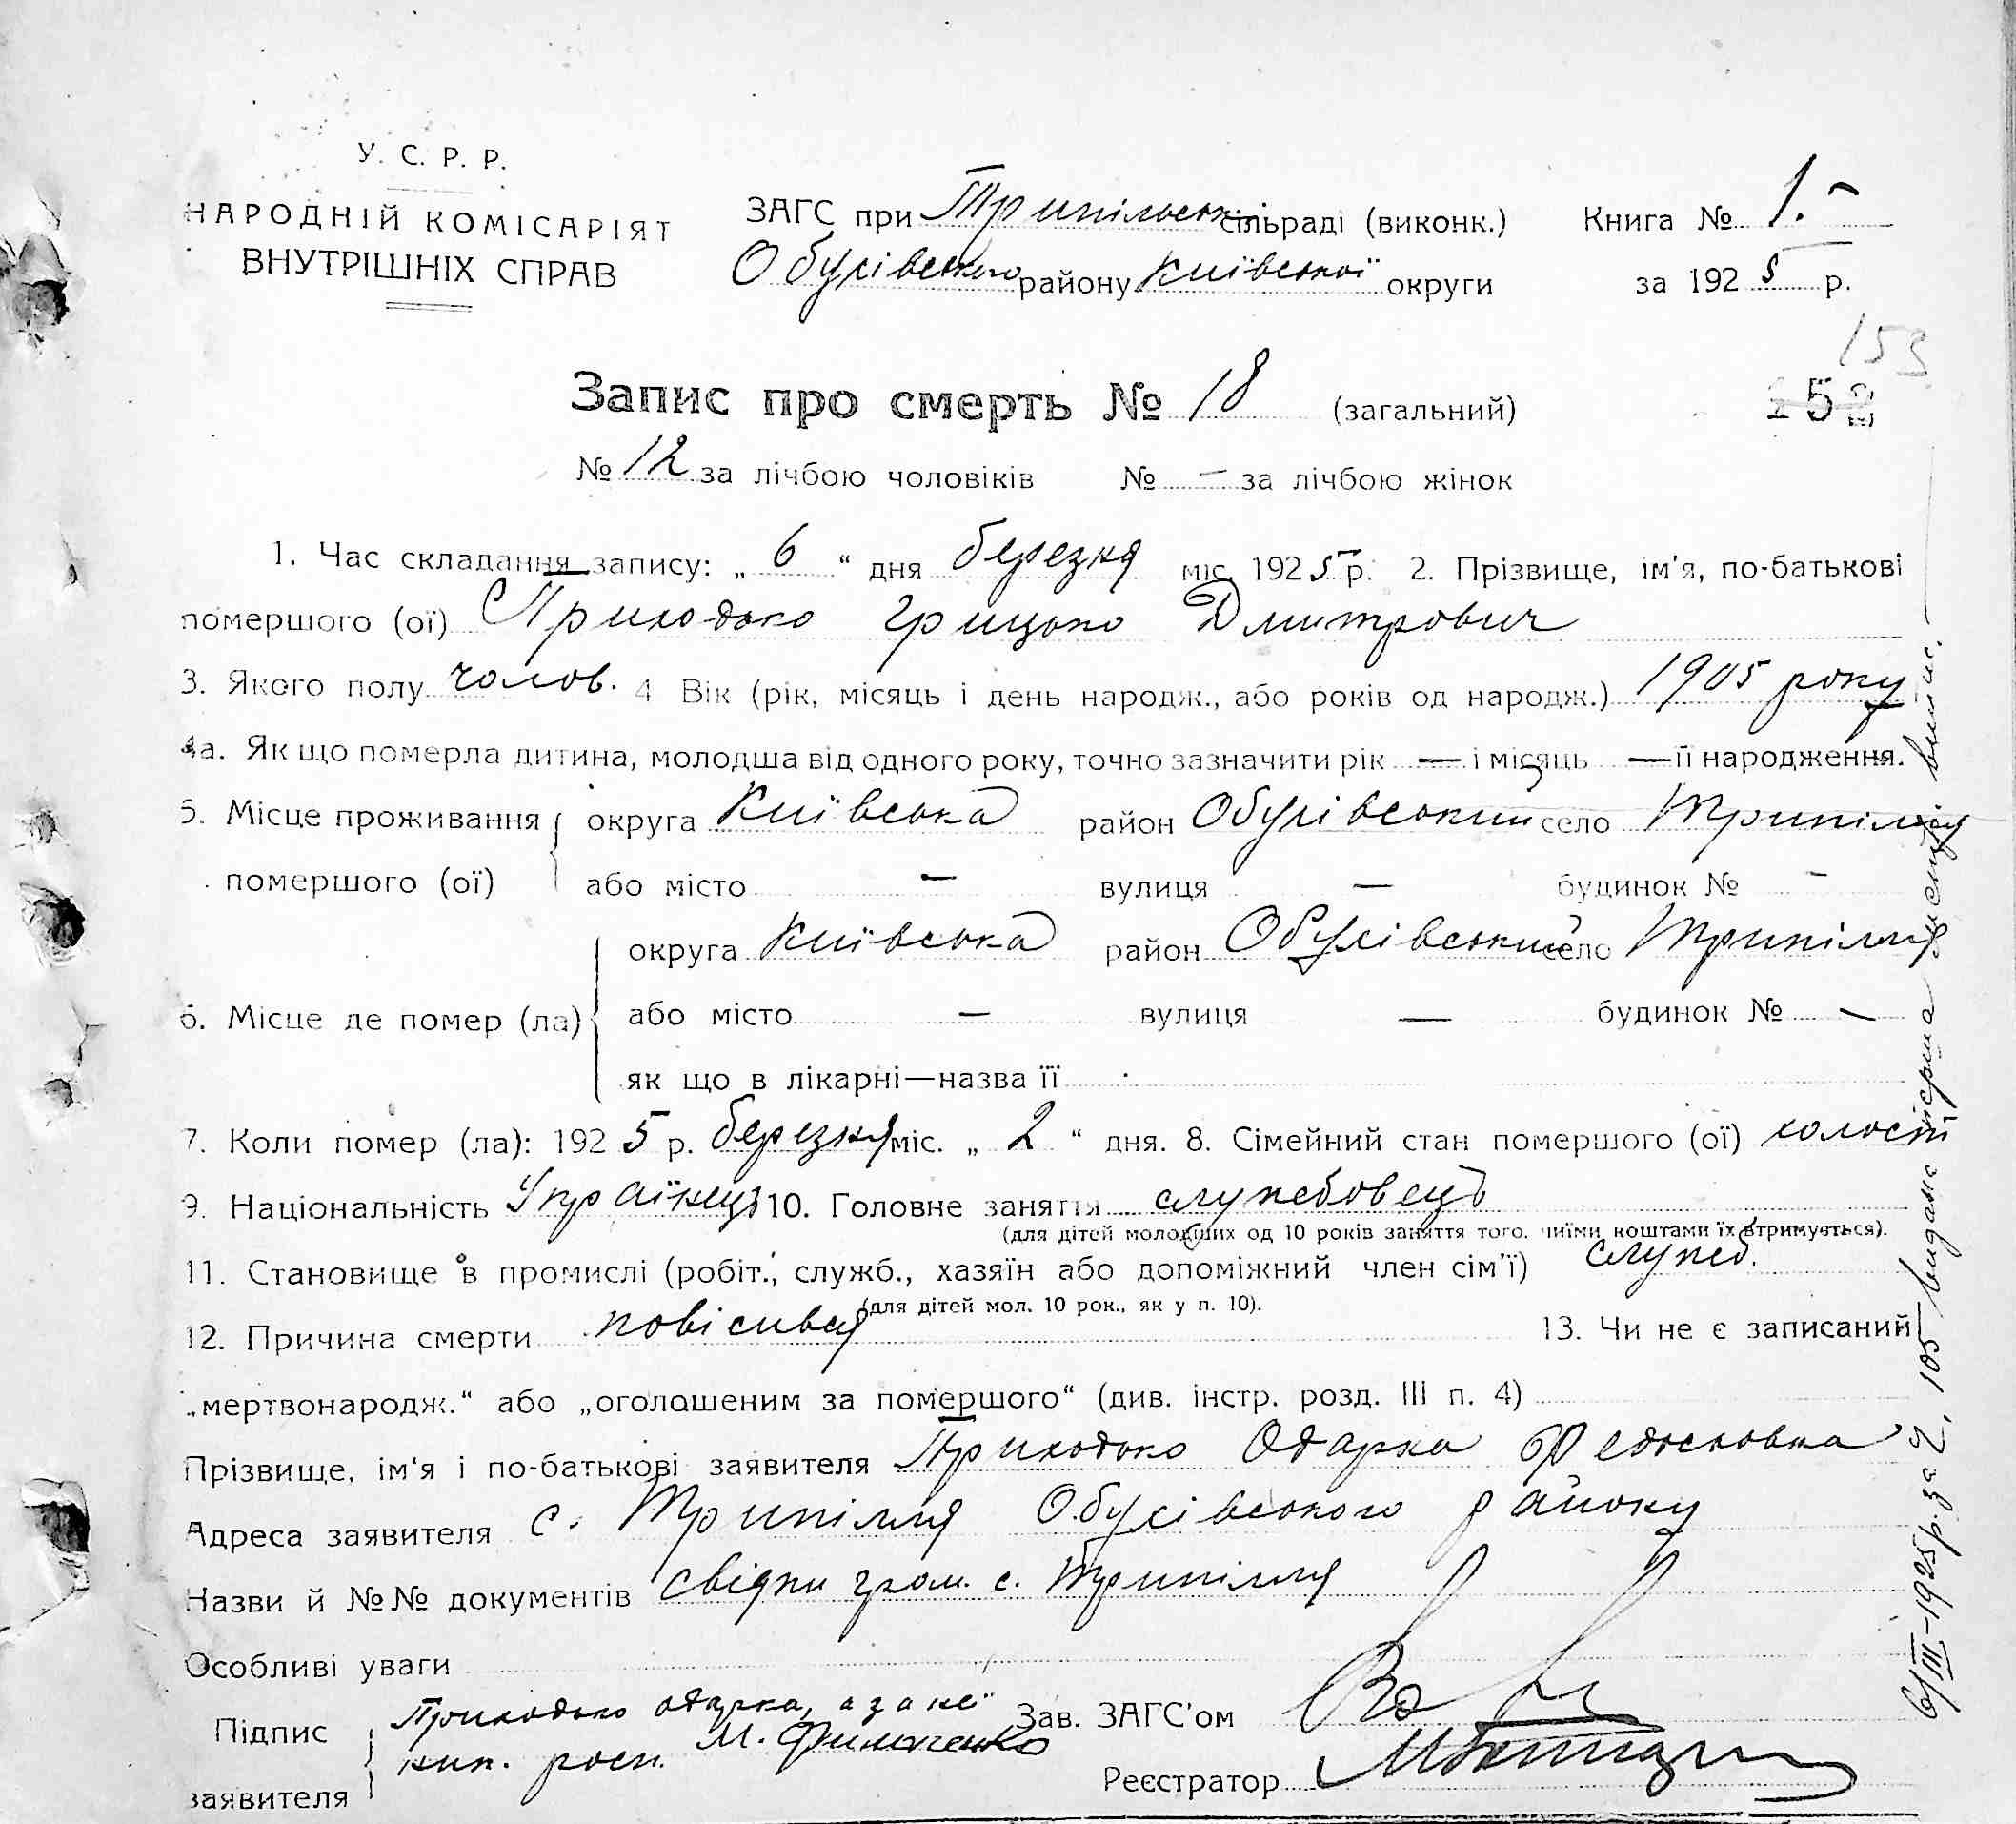 У. С. Р. Р.
НАРОДНІЙ КОМІСАРІЯТ
ВНУТРІШНІХ СПРАВ
ЗАГС при Трипільськ сільраді (виконк.)
Обухівського району Київської округи
Книга № 1.
за 1925 р.
153
152
Запис про смерть № 18 (загальний)
№ 12 за лічбою чоловіків № — за лічбою жінок
1. Час складання запису: „ 6 “ дня березня міс. 1925 р. 2. Прізвище, ім'я, по-батькові
помершого (ої) Приходько Грицько Дмитрович
3. Якого полу чолов. 4 Вік (рік, місяць і день народж., або років од народж.) 1905 року
4а. Як що померла дитина, молодша від одного року, точно зазначити рік — і місяць — її народження.
5. Місце проживання округа Київська район Обухівський село Трипілля
помершого (ої) або місто — вулиця — будинок № —
округа Київська район Обухівський село Трипілля
6. Місце де помер (ла) або місто — вулиця — будинок № —
як що в лікарні—назва її
7. Коли помер (ла): 1925 р. березня міс. „ 2 “ дня. 8. Сімейний стан помершого (ої) холостй
9. Національність Українець 10. Головне заняття службовець
(для дітей молодших од 10 років заняття того, чиїми коштами їх втримується).
11. Становище в промислі (робіт., служб., хазяїн або допоміжний член сім'ї) служб.
(для дітей мол. 10 рок., як у п. 10).
12. Причина смерти повісився 13. Чи не є записаний
„мертвонародж.“ або „оголошеним за помершого“ (див. інстр. розд. III п. 4)
Прізвище, ім'я і по-батькові заявителя Приходько Одарка Федосковна
Адреса заявителя с. Трипілля Обухівського району
Назви й №№ документів свідки гром. с. Трипілля
Особливі уваги
Підпис заявителя Приходько Одарка, а за неї
М.
Зав. ЗАГС'ом
Реєстратор
6/III-1925 р. за Ч. 105 видана випис.